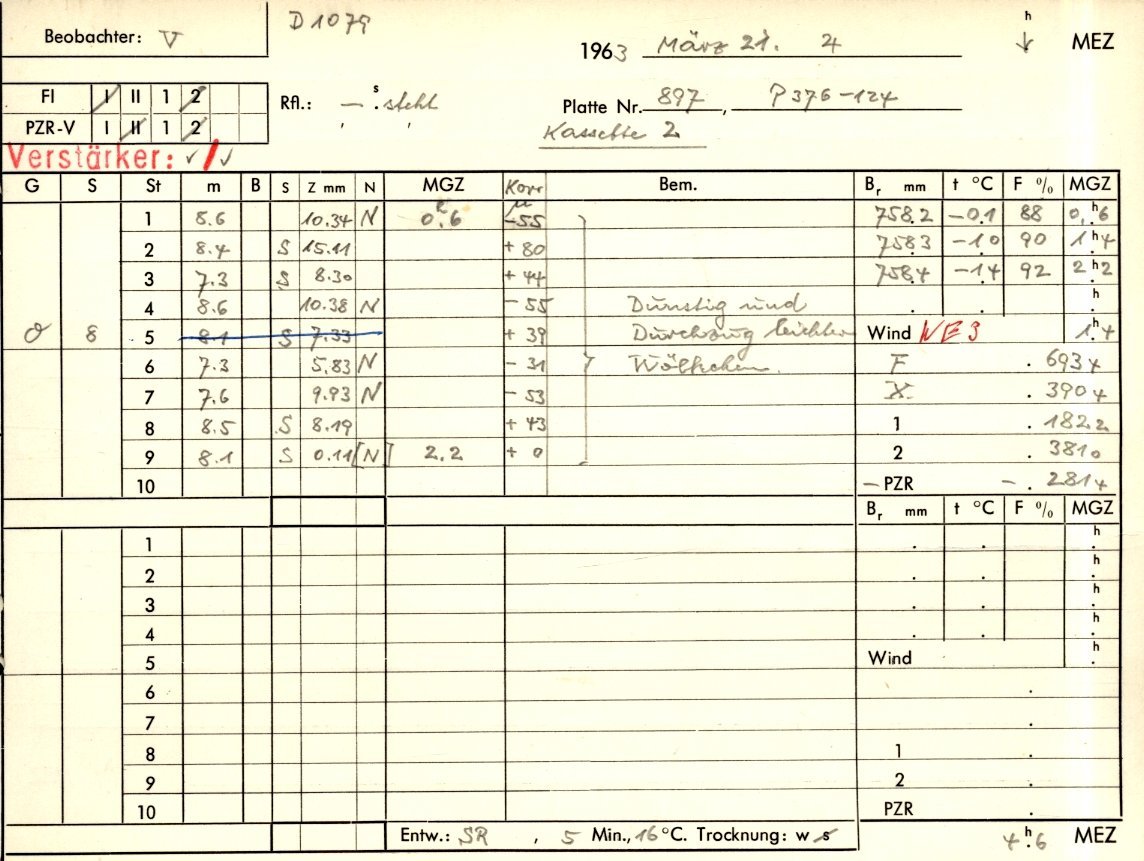 D 1079
Beobachter: V
1963 März 21. 4 h MEZ
FI I II 1 2
Rfl.: — s. steht
Platte Nr. 897, P376-124
PZR-V I II 1 2
Kassette 2
Verstärker: ✓/✓
G S St m B S Z mm N MGZ Korr μ Bem. Br mm t °C F % MGZ
1 8.6 10.34 N 0h.6 -55 758.2 -0.1 88 0.h6
2 8.4 S 15.11 +80 758.3 -1.0 90 1.h4
3 7.3 S 8.30 +44 758.4 -1.4 92 2.h2
4 8.6 10.38 N -55 Dunstig und . . h
8 5 8.1 S 7.33 +39 Durchzug leichter Wind NE 3 1.h4
6 7.3 5.83 N -31 Wölkchen. F . 6934
7 7.6 9.93 N -53 X . 3904
8 8.5 S 8.19 +43 1 . 1822
9 8.1 S 0.11 [N] 2.2 + 0 2 . 3810
10 — PZR — . 2814
Br mm t °C F % MGZ
1 . . h.
2 . . h.
3 . . h.
4 . . h.
5 Wind h.
6 .
7 .
8 1 .
9 2 .
10 PZR .
Entw.: SR , 5 Min., 16 °C. Trocknung: w s 4.h6 MEZ